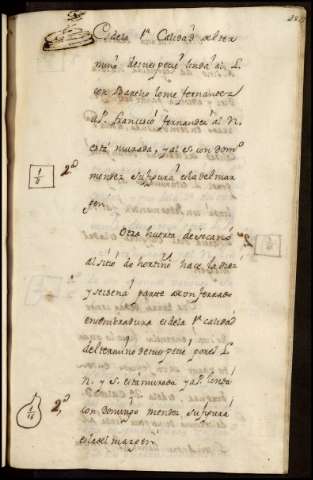 Es dela 1ª Calidad del ter
mino de su especie linda al L.
con Bartholome fernandez
al P. francisco fernandez al N.
está murada, y al S. con Domº
mendez su figura es la del mar
gen.
1/8
2º
Otra huerta de secano
al sitio de hace la diez
y seisena parte de un ferrado
en sembradura es dela 1ª calidad
del termino de su especie por el L.
N. y S. está murada y al P. linda
con Domingo mendez su figura
es la del margen.
1/16
2º